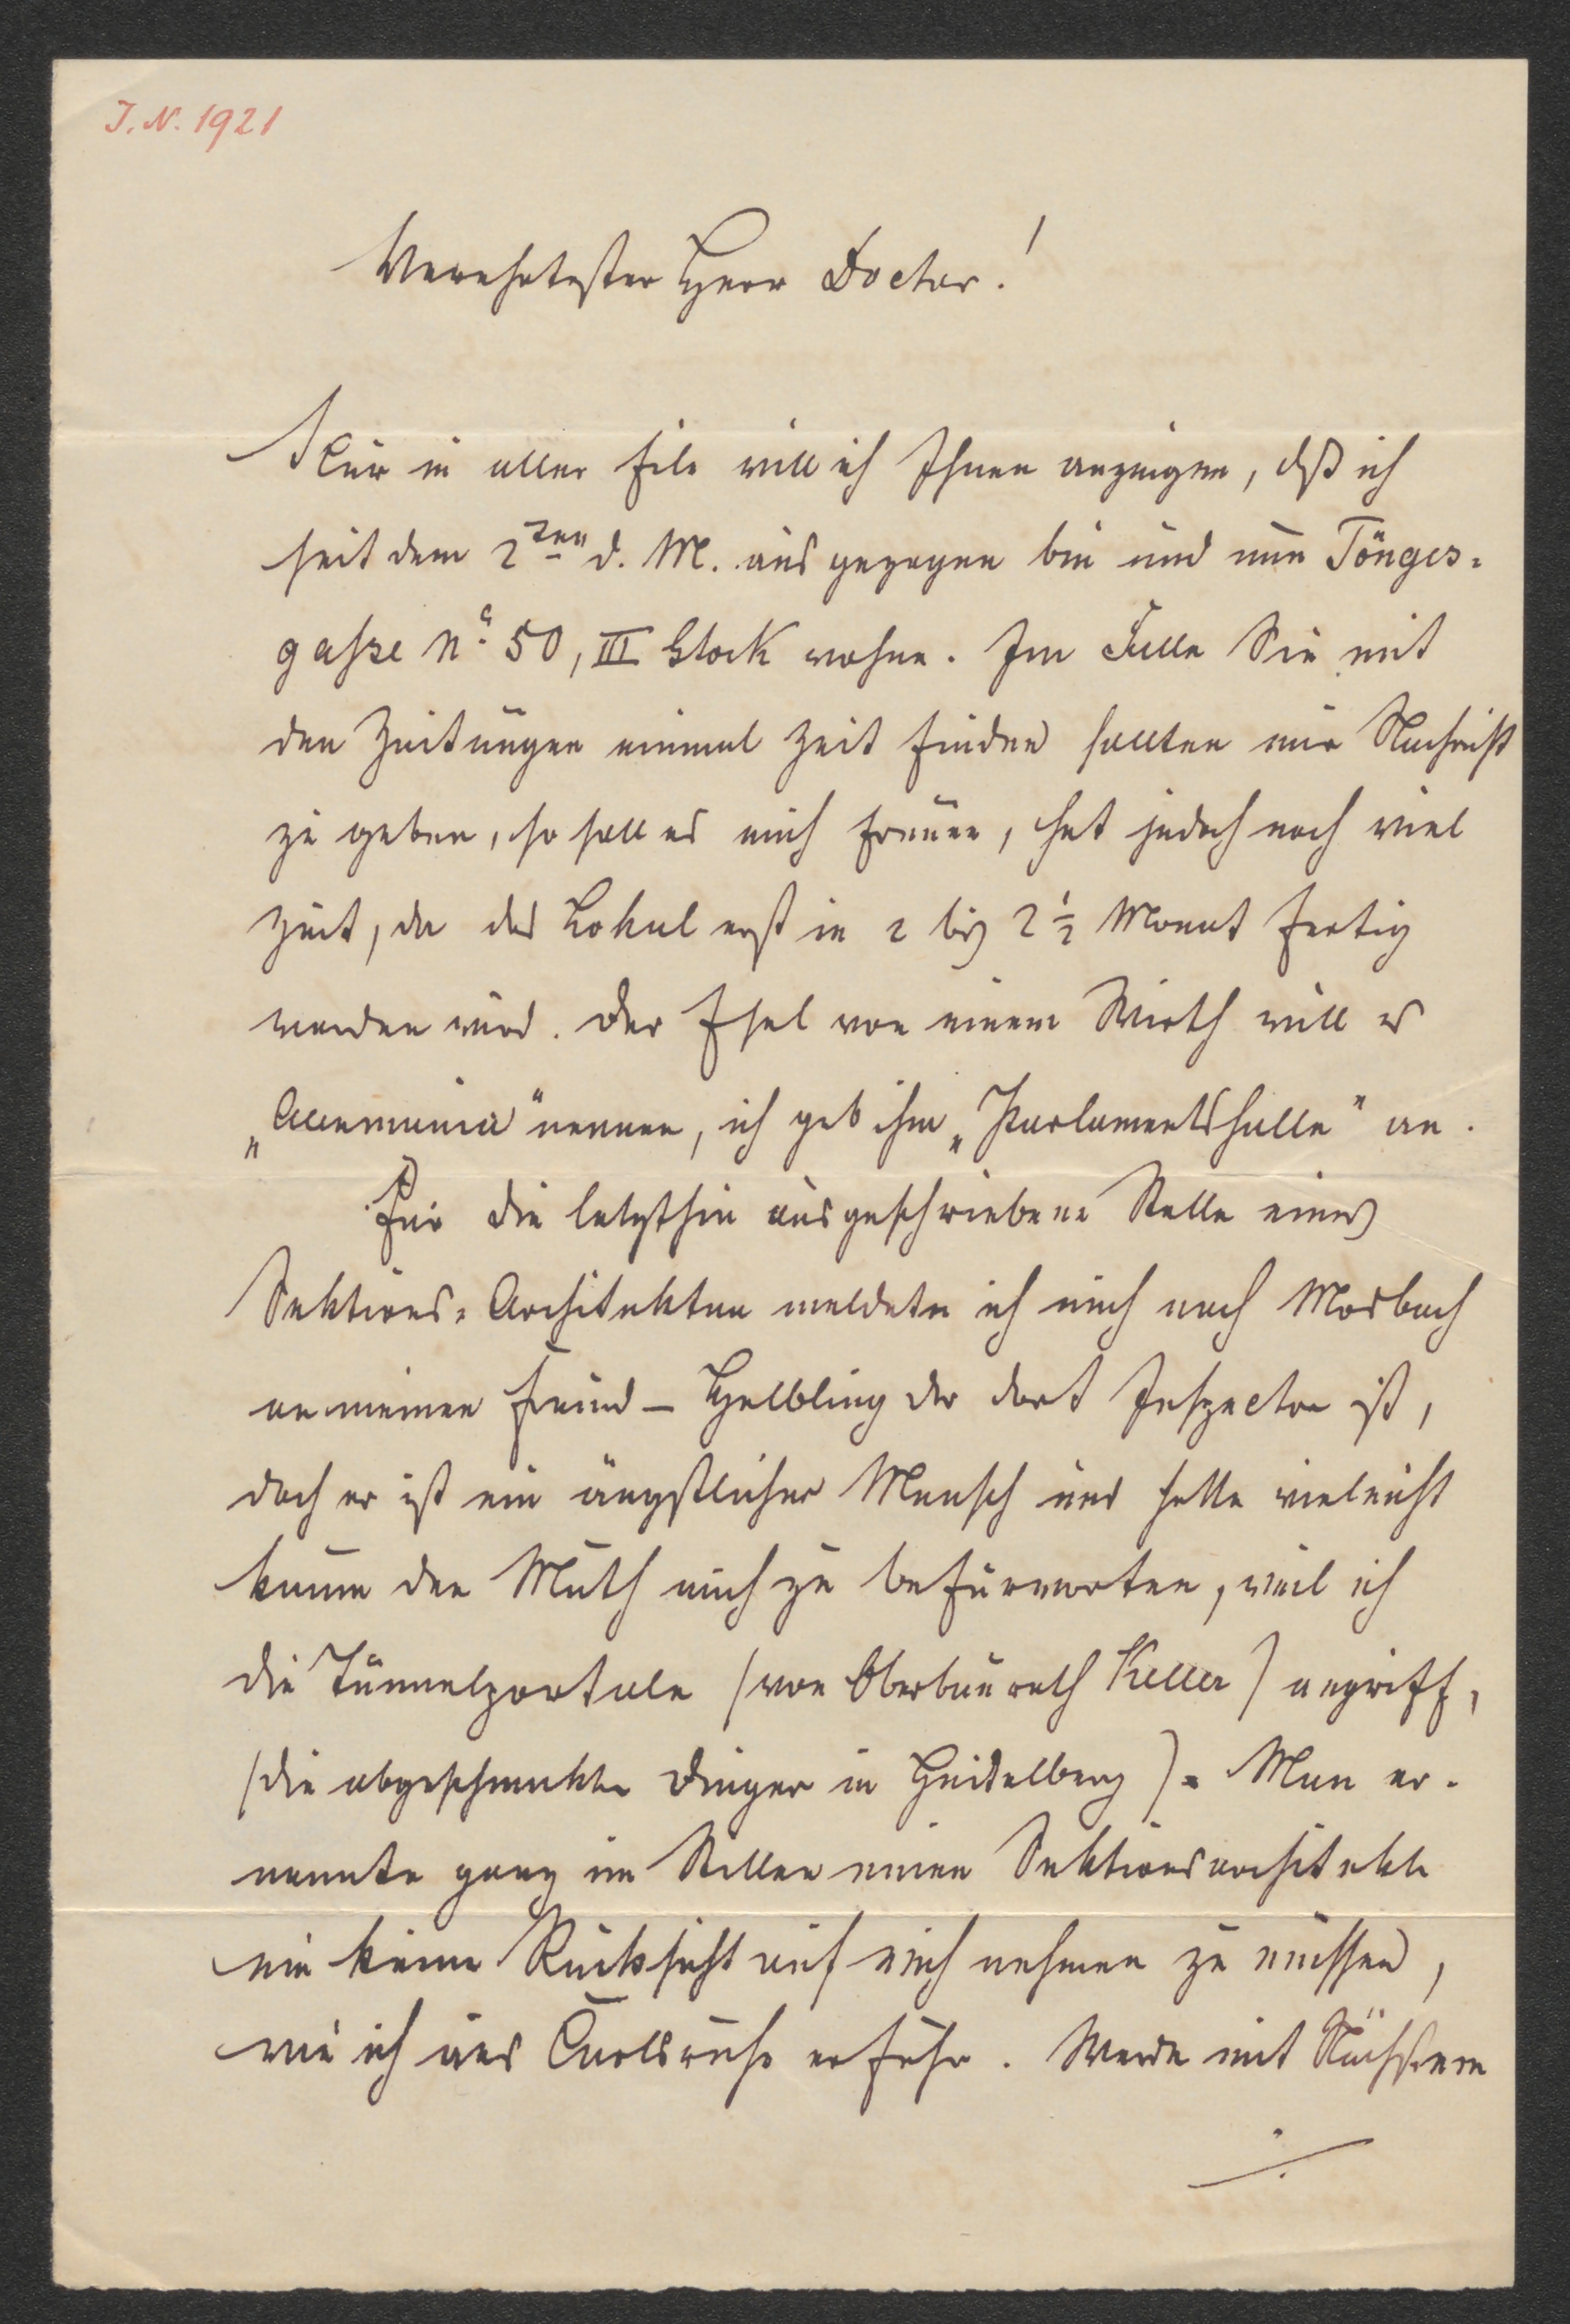 J. N. 1921
Verehrtester Herr Doctor!
Nur in aller Eile will ich Ihnen anzeigen, daß ich
seit dem 2ten d. M. ausgezogen bin und nun Tönges=
gaße No 50, III Stock wohne. Im Falle Sie mit
den Zeitungen einmal Zeit finden sollten mir Nachricht
zu geben, so soll es mich freuen, hat jedoch noch viel
Zeit, da das Lokal erst in 2 bis 2 ½ Monat fertig
werden wird. Der Esel von einem Wirth will es
„Allemania" nennen, ich geb ihm „Parlamentshalle" an.
Für die letzthin ausgeschriebene Stelle eines
Sektions=Architekten meldete ich mich nach Mosbach
an meinen Freund – Helbling der dort Inspector ist,
doch er ist ein ängstlicher Mensch und hatte vieleicht
kaum den Muth mich zu befürworten, weil ich
die Tunnelportale (von Oberbaurath Keller) angriff,
(die abgeschmakte Dinger in Heidelberg). Man er-
nannte ganz im Stillen einen Sektionsarchitekte
um keine Rücksicht auf mich nehmen zu müssen,
wie ich aus Carlsruhe erfuhr. Werde mit Nächstem
./.